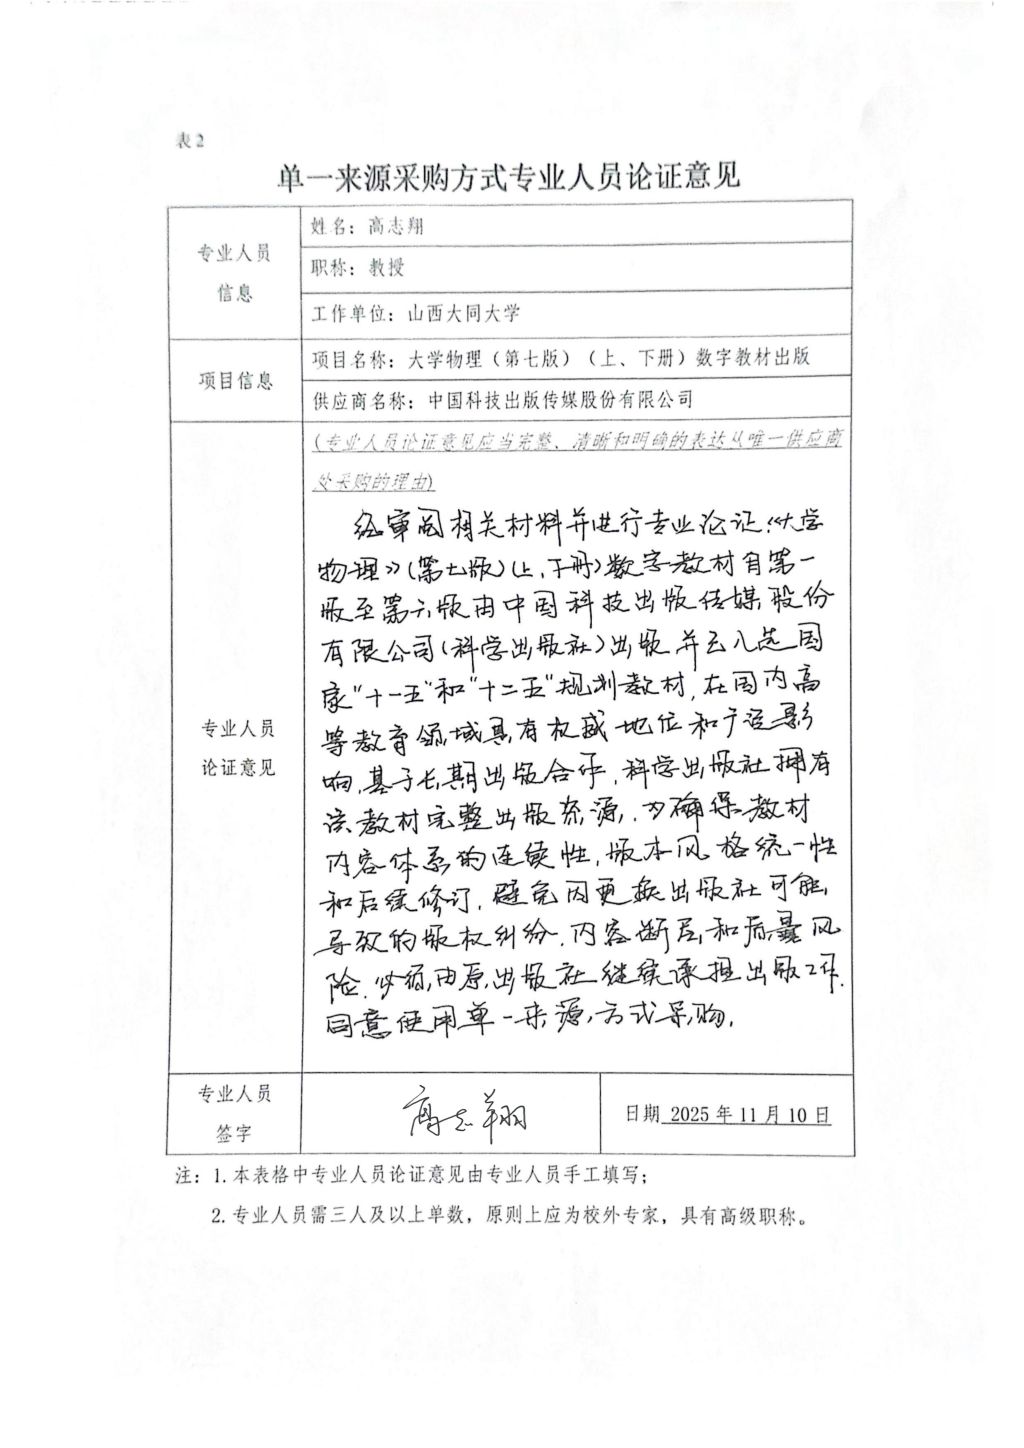 表2
单一来源采购方式专业人员论证意见
专业人员
信息
姓名：高志翔
职称：教授
工作单位：山西大同大学
项目信息
项目名称：大学物理（第七版）（上、下册）数字教材出版
供应商名称：中国科技出版传媒股份有限公司
专业人员
论证意见
(专业人员论证意见应当完整、清晰和明确的表达从唯一供应商
处采购的理由)
经审阅相关材料并进行专业论证，《大学
物理》(第七版)(上、下册)数字教材自第一
版至第六版由中国科技出版传媒股份
有限公司(科学出版社)出版，并已入选国
家“十一五”和“十二五”规划教材，在国内高
等教育领域具有权威地位和广泛影
响，基于长期出版合作，科学出版社拥有
该教材完整出版资源，为确保教材
内容体系的连续性，版本风格统一性
和后续修订，避免因更换出版社可能
导致的版权纠纷，内容断层和质量风
险，必须由原出版社继续承担出版工作，
同意使用单一来源方式采购。
专业人员
签字
高志翔
日期 2025年11月10日
注：1.本表格中专业人员论证意见由专业人员手工填写；
2.专业人员需三人及以上单数，原则上应为校外专家，具有高级职称。